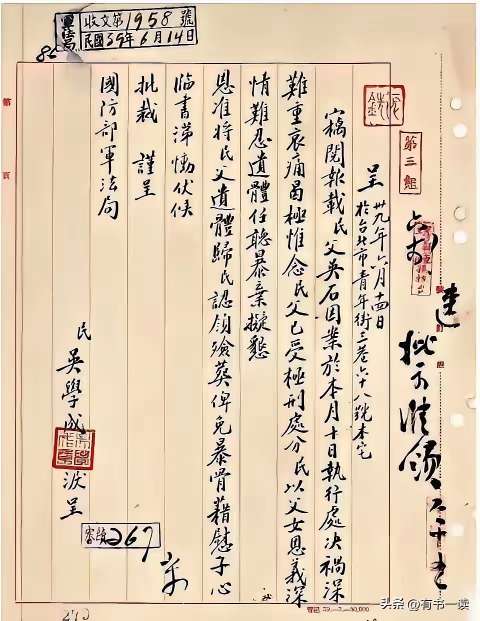 收文第1958號
民國39年6月14日
第三組
呈 卅九年六月十四日
於台北市青年街三巷六十八號本宅
竊閱報載民父吳石因業於本月十日執行處決禍深
難重哀痛曷極惟念民父已受極刑處分民以父女恩義深
情難忍遺體任聽暴棄擬懇
恩准將民父遺體歸民認領殮葬俾免暴骨藉慰子心
臨書涕慟伏候
批裁 謹呈
國防部軍法局
民 吳學成 淚呈
267
头条 @有书一读